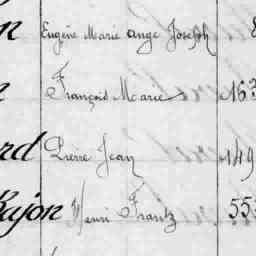 n Eugène Marie ange Joseph
François Marie 163
rd Pierre Jean 149
Bajon Henri Frantz 553